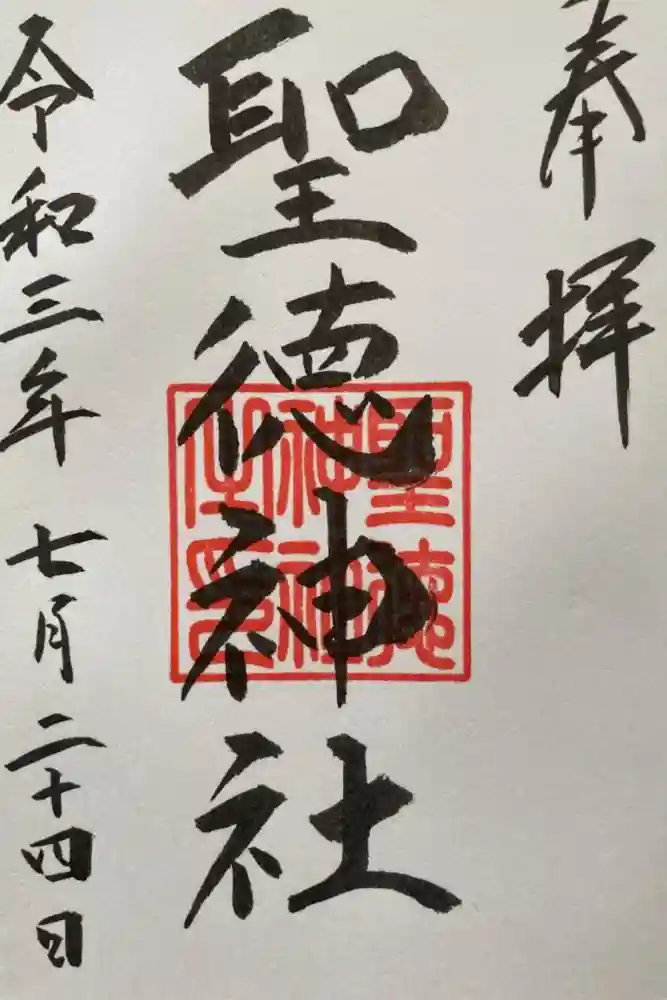 奉拝
聖徳神社
聖徳
神社
守印
令和三年七月二十四日